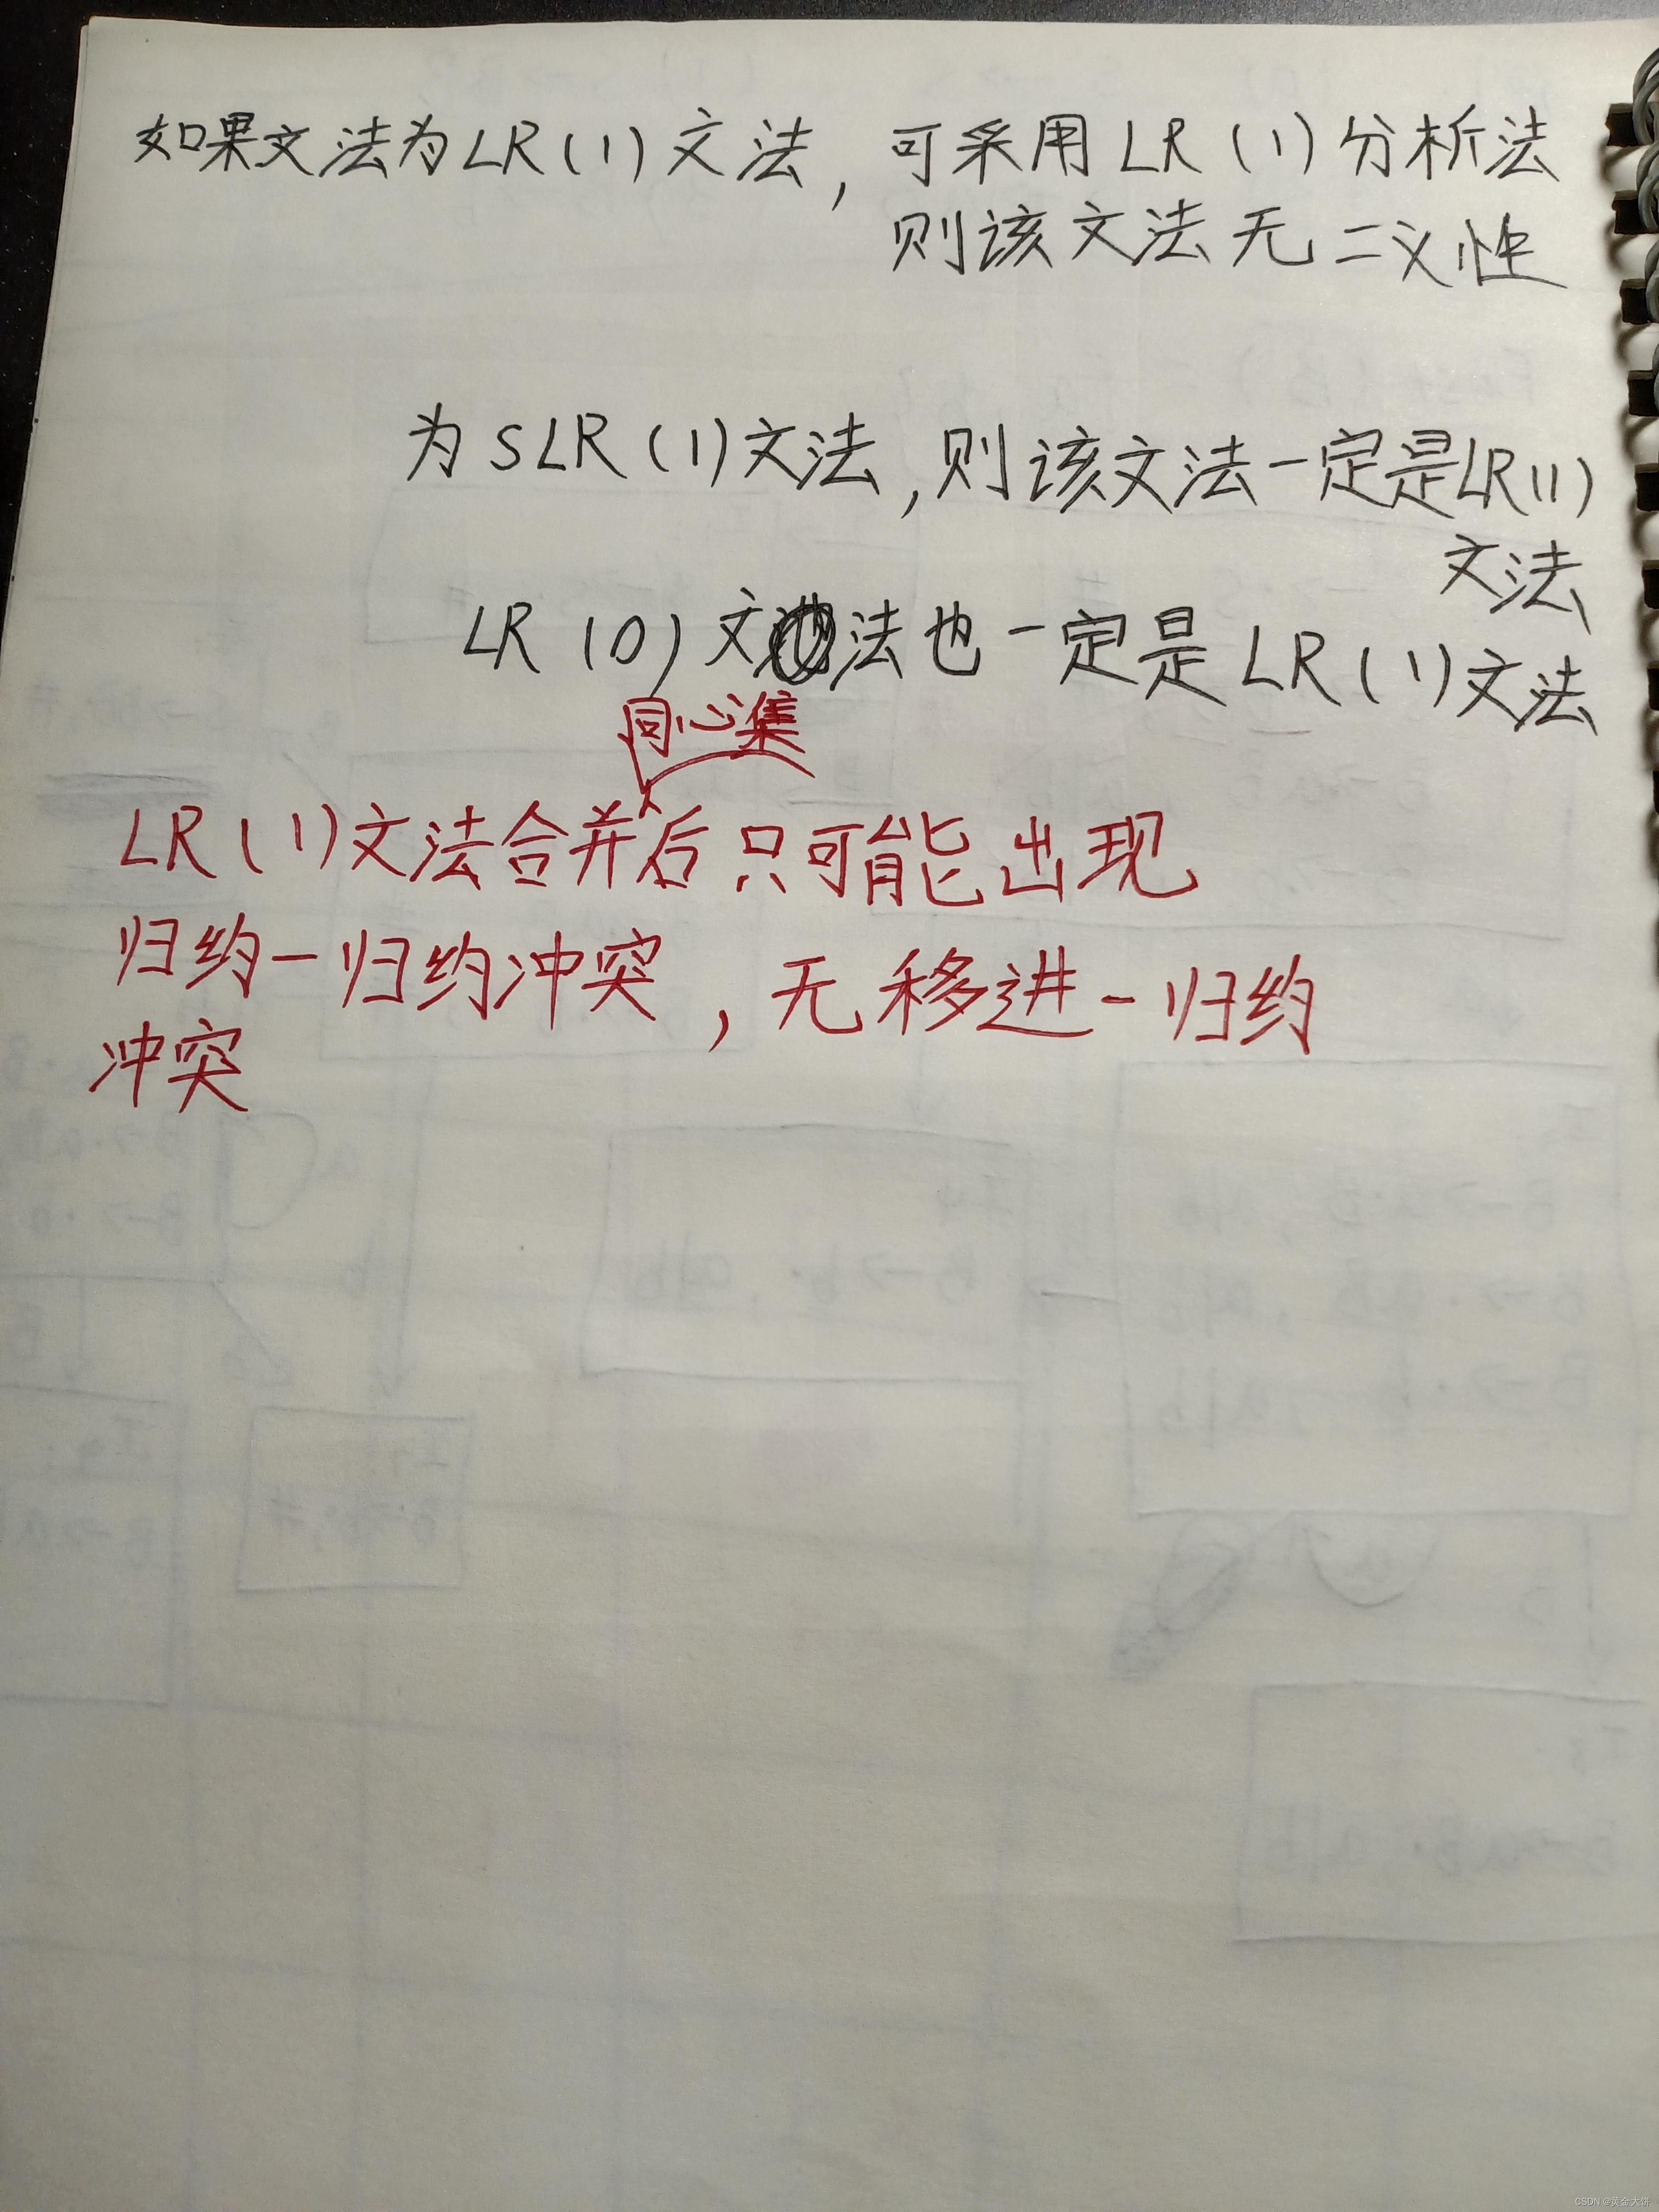 如果文法为LR(1)文法,可采用LR(1)分析法
则该文法无二义性
为SLR(1)文法,则该文法一定是LR(1)
文法
LR(0)文法也一定是LR(1)文法
同心集
LR(1)文法合并后只可能出现
归约-归约冲突,无移进-归约
冲突
CSDN @黄金大饼